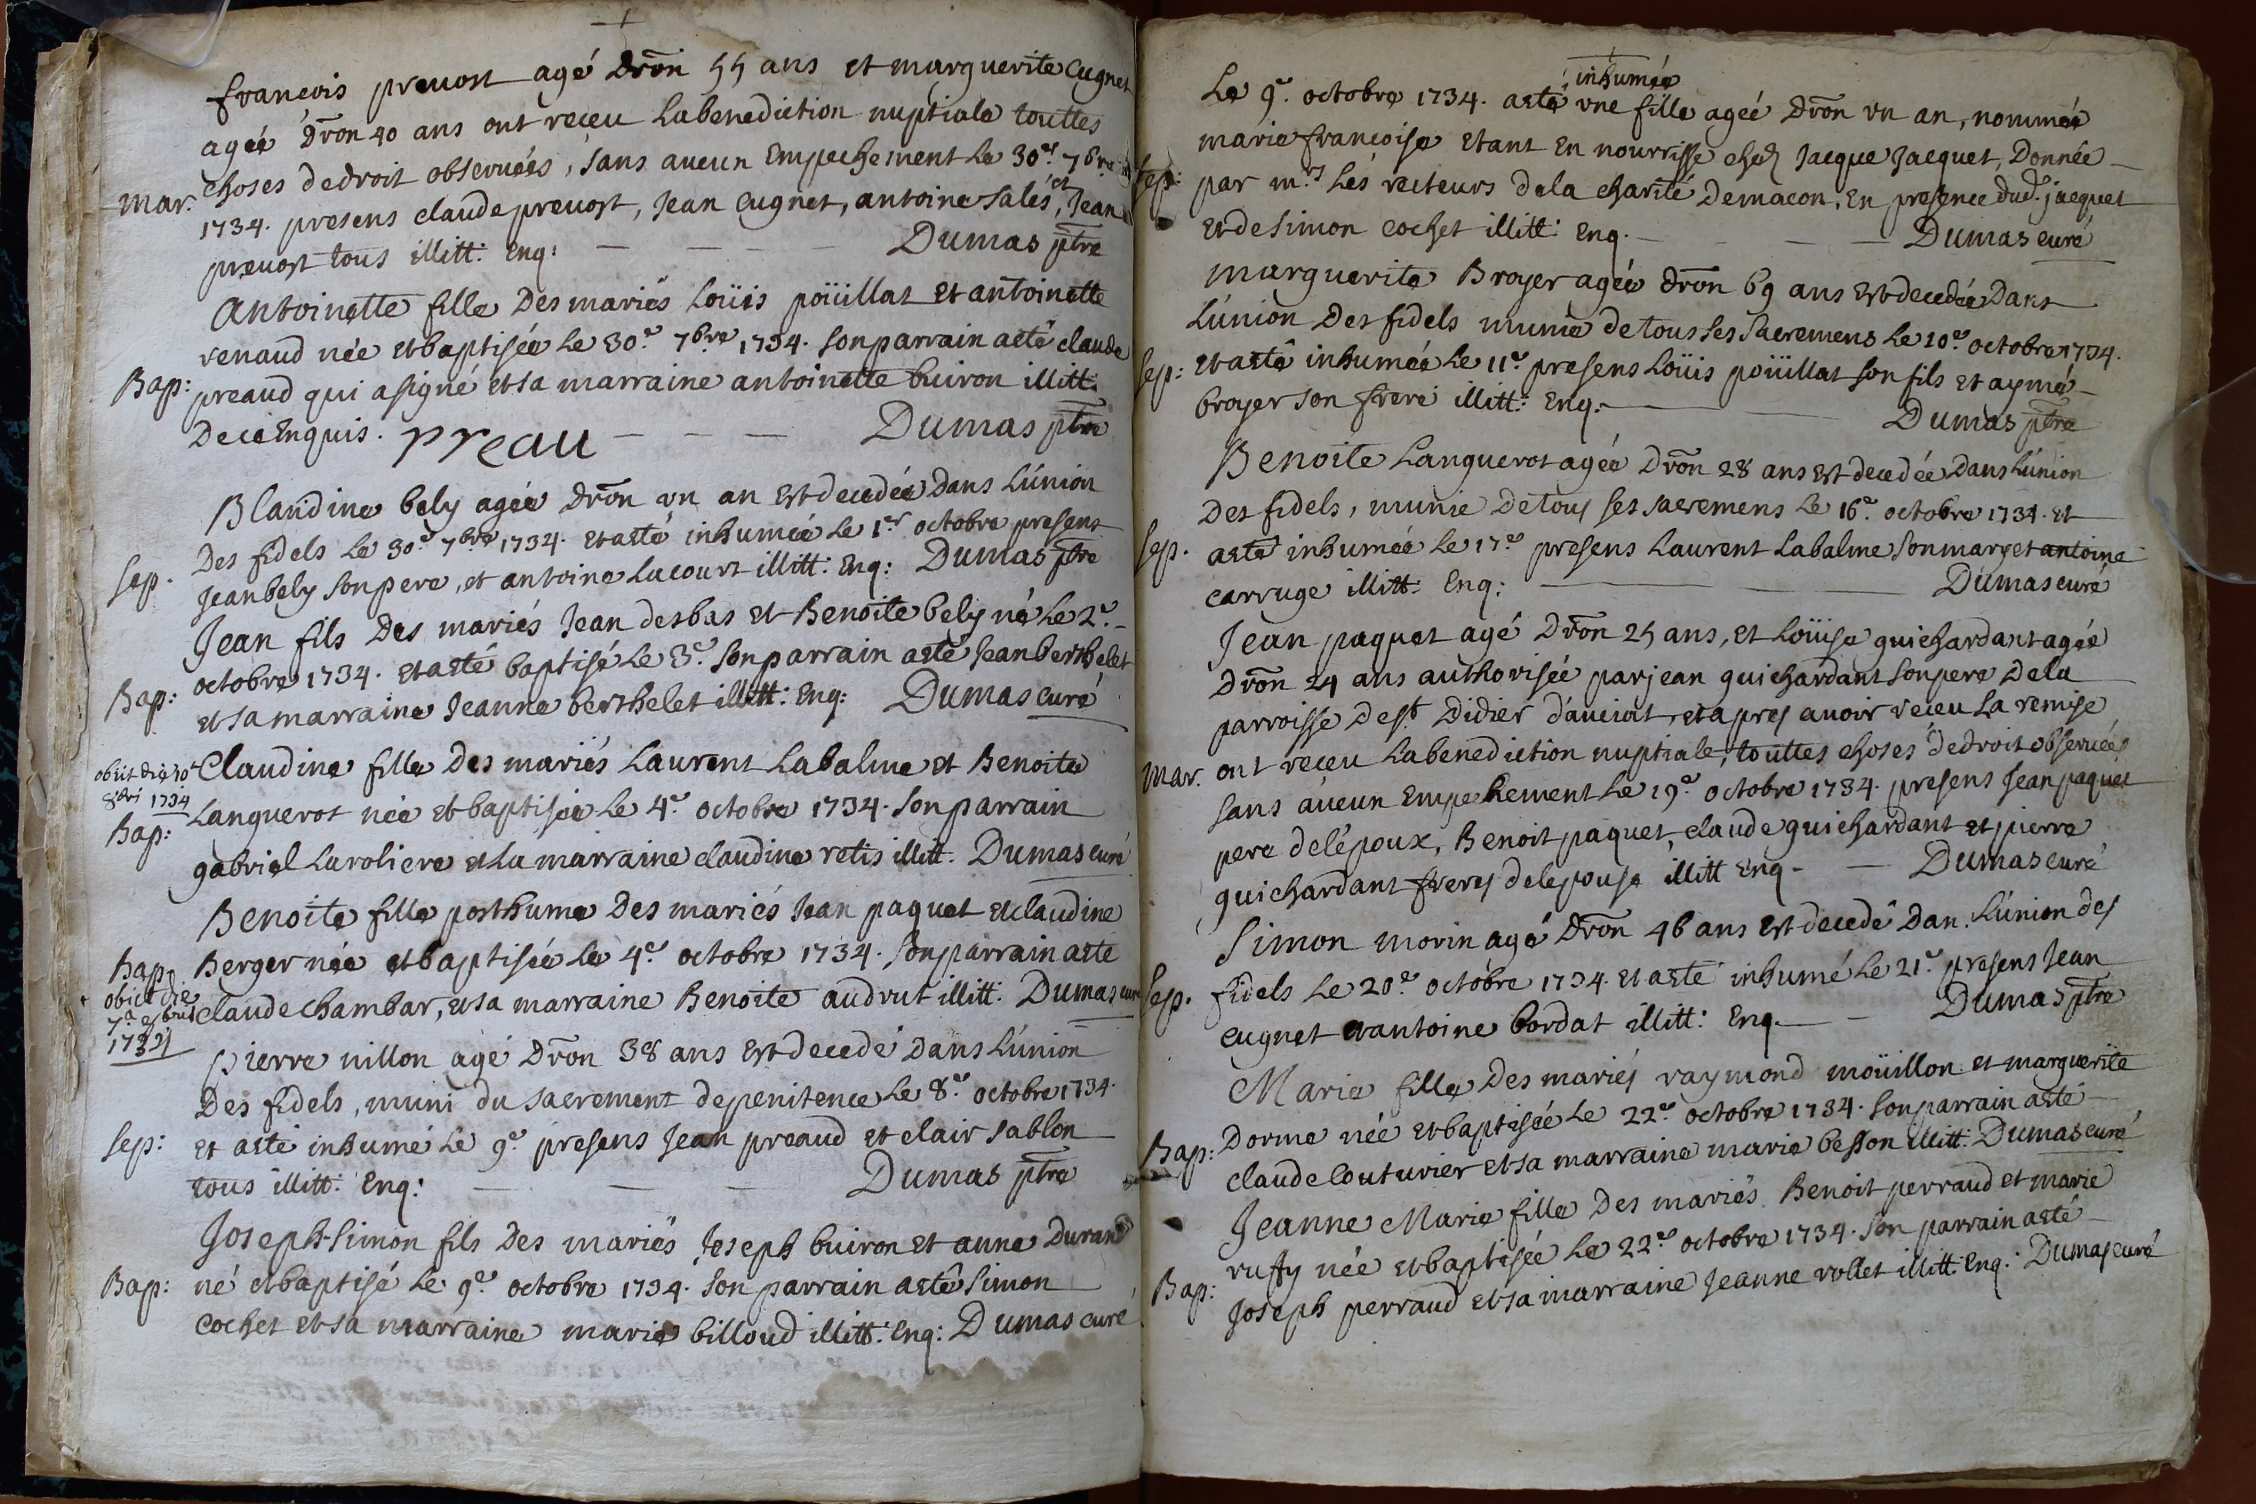 francois preuost agé dron 55 ans et marguerite Cugnet
ageé dron 40 ans ont receu la benediction nuptiale touttes
choses de droit obseruées, sans aucun Empechement le 30e 7bre
Mar. 1734. presens claude preuost, Jean Cugnet, antoine sales, et Jean
preuost tous illitt: Enq: Dumas ptre
Antoinette fille Des mariés Loüis poüillat et antoinette
renaud née et baptisée le 30e 7bre 1734. son parrain a eté claude
Bap: preaud qui a signé et sa marraine antoinette buiron illitt:
De ce Enquis. preau Dumas ptre
Blandine bely agée dron un an Est decedée Dans L'union
Des fidels le 30e 7bre 1734. et a eté inhumée le 1er octobre presens
Sep. Jean bely son pere, et antoine Lacourt illitt: Enq: Dumas ptre
Jean fils Des mariés Jean desbas et Benoite bely né le 2e
octobre 1734. et a eté baptisé le 3e son parrain a eté Jean berthelet
Bap: et sa marraine Jeanne berthelet illitt: Enq: Dumas curé
obiit die 10a
8bris 1734
Claudine fille Des mariés Laurent Labalme et Benoite
Bap: Languerot née et baptisée le 4e octobre 1734. son parrain
gabriel Laroliere et La marraine claudine retis illitt. Dumas curé
Benoite fille posthume Des mariés Jean paquet et claudine
Bap: Berger née et baptisée le 4e octobre 1734. son parrain a eté
obiit die
7a
1734
claude Chambar, et sa marraine Benoite audrut illitt. Dumas curé
Pierre uillon agé Dron 38 ans Est decedé Dans L'union
Des fidels, muni du sacrement de penitence le 8e octobre 1734.
Sep: et a eté inhumé le 9e presens Jean preaud et clair sablon
tous illitt: Enq: Dumas ptre
Joseph-Simon fils Des mariés Joseph buiron et anne Durand
Bap: né et baptisé le 9e octobre 1734. son parrain a eté Simon
Cochet et sa marraine marie billoud illitt: Enq: Dumas curé
Le 9e octobre 1734. a eté inhumée vne fille ageé Dron vn an, nommée
marie francoise Etant En nourrisse chez Jacque Jacquet, Donnée
Sep: par m.rs Les recteurs de la charité De macon, En presence dud. jacquet
et de Simon cochet illitt: Enq. Dumas curé
marguerite Broyer agée dron 69 ans Est decedée Dans
L'union Des fidels munie de tous ses sacremens le 10e octobre 1734.
Sep: et a eté inhumée le 11e presens Loüis poüillat son fils et aymé
broyer son frere illitt: Enq: Dumas ptre
Benoite Languerot agée Dron 28 ans Est decedée Dans L'union
Des fidels, munie De tous ses sacremens le 16e octobre 1734. et
Sep. a eté inhumée le 17e presens Laurent Labalme son mary et antoine
carruge illitt: Enq: Dumas curé
Jean paquet agé Dron 25 ans, et Loüise guichardant agée
Dron 24 ans authorisée par jean guichardant son pere De la
parroisse De st Didier d'auciat, et apres auoir receu la remise
Mar. ont receu La benediction nuptiale, touttes choses de droit obseruées
sans aucun Empechement le 19e octobre 1734. presens Jean paquet
pere de l'époux, Benoit paquet, claude guichardant et pierre
guichardant freres de lepouse illitt Enq. Dumas curé
Simon morin agé Dron 46 ans Est decedé Dan. L'union des
Sep. fidels le 20e octobre 1734. et a eté inhumé le 21e presens Jean
cugnet et antoine bordat illitt: Enq. Dumas ptre
Marie fille Des mariés raymond moüillon et marguerite
Bap: Dorme née et baptisée le 22e octobre 1734. son parrain a eté
claude Couturier et sa marraine marie besson illitt: Dumas curé
Jeanne Marie fille Des mariés Benoit perraud et marie
ruffy née et baptisée le 22e octobre 1734. son parrain a eté
Bap: Joseph perraud et sa marraine Jeanne rollet illitt: Enq: Dumas curé